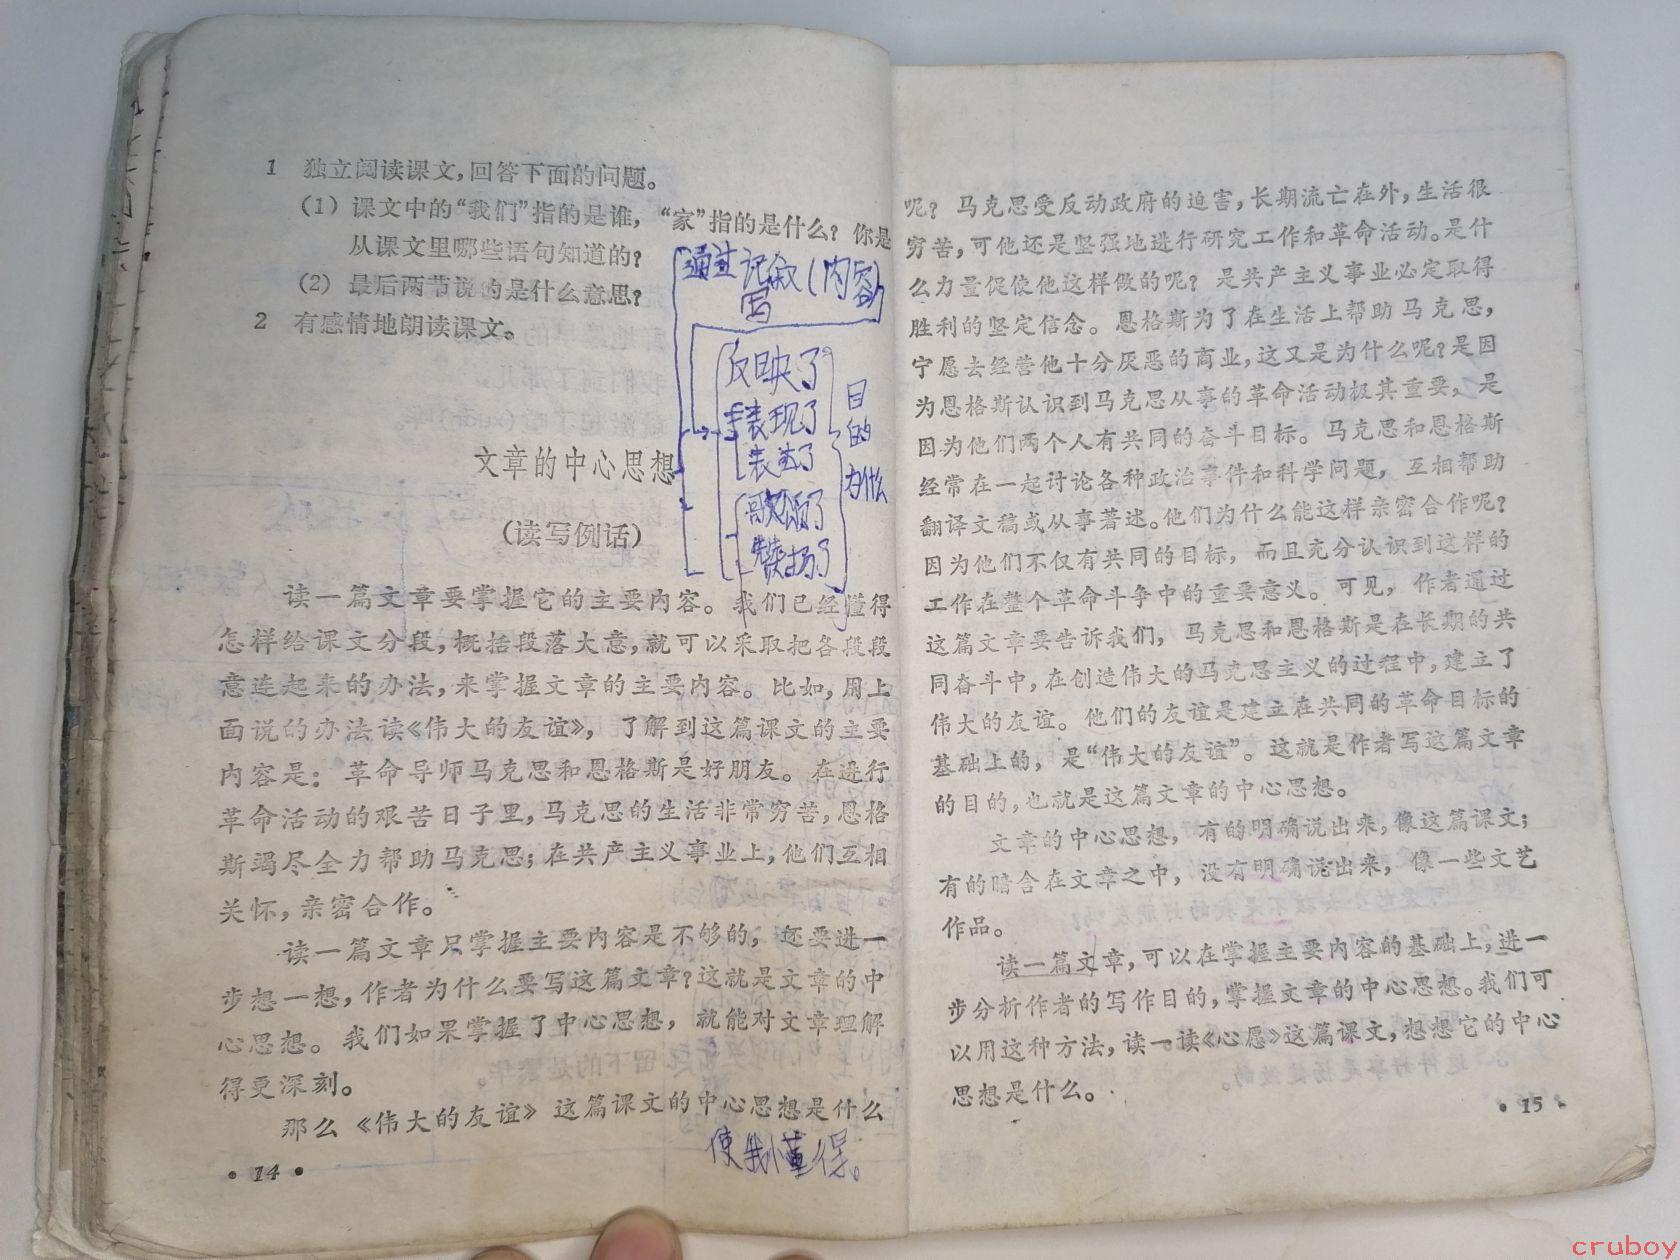 1 独立阅读课文，回答下面的问题。
（1）课文中的“我们”指的是谁，“家”指的是什么？你是
从课文里哪些语句知道的？
（2）最后两节说的是什么意思？
2 有感情地朗读课文。
通过记叙（内容）
写
反映了
表现了
表达了
歌颂了
赞扬了
目的
为什么
文章的中心思想
（读写例话）
读一篇文章要掌握它的主要内容。我们已经懂得
怎样给课文分段，概括段落大意，就可以采取把各段段
意连起来的办法，来掌握文章的主要内容。比如，用上
面说的办法读《伟大的友谊》，了解到这篇课文的主要
内容是：革命导师马克思和恩格斯是好朋友。在进行
革命活动的艰苦日子里，马克思的生活非常穷苦，恩格
斯竭尽全力帮助马克思；在共产主义事业上，他们互相
关怀，亲密合作。
读一篇文章只掌握主要内容是不够的，还要进一
步想一想，作者为什么要写这篇文章？这就是文章的中
心思想。我们如果掌握了中心思想，就能对文章理解
得更深刻。
那么《伟大的友谊》这篇课文的中心思想是什么
使我懂得。
• 14 •
呢？马克思受反动政府的迫害，长期流亡在外，生活很
穷苦，可他还是坚强地进行研究工作和革命活动。是什
么力量促使他这样做的呢？是共产主义事业必定取得
胜利的坚定信念。恩格斯为了在生活上帮助马克思，
宁愿去经营他十分厌恶的商业，这又是为什么呢？是因
为恩格斯认识到马克思从事的革命活动极其重要，是
因为他们两个人有共同的奋斗目标。马克思和恩格斯
经常在一起讨论各种政治事件和科学问题，互相帮助
翻译文稿或从事著述。他们为什么能这样亲密合作呢？
因为他们不仅有共同的目标，而且充分认识到这样的
工作在整个革命斗争中的重要意义。可见，作者通过
这篇文章要告诉我们，马克思和恩格斯是在长期的共
同奋斗中，在创造伟大的马克思主义的过程中，建立了
伟大的友谊。他们的友谊是建立在共同的革命目标的
基础上的，是“伟大的友谊”。这就是作者写这篇文章
的目的，也就是这篇文章的中心思想。
文章的中心思想，有的明确说出来，像这篇课文；
有的暗含在文章之中，没有明确说出来，像一些文艺
作品。
读一篇文章，可以在掌握主要内容的基础上，进一
步分析作者的写作目的，掌握文章的中心思想。我们可
以用这种方法，读一读《心愿》这篇课文，想想它的中心
思想是什么。
• 15 •
cruboy